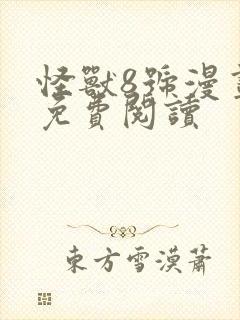 怪獸8號漫畫
免費閱讀
東方雪漠蕭